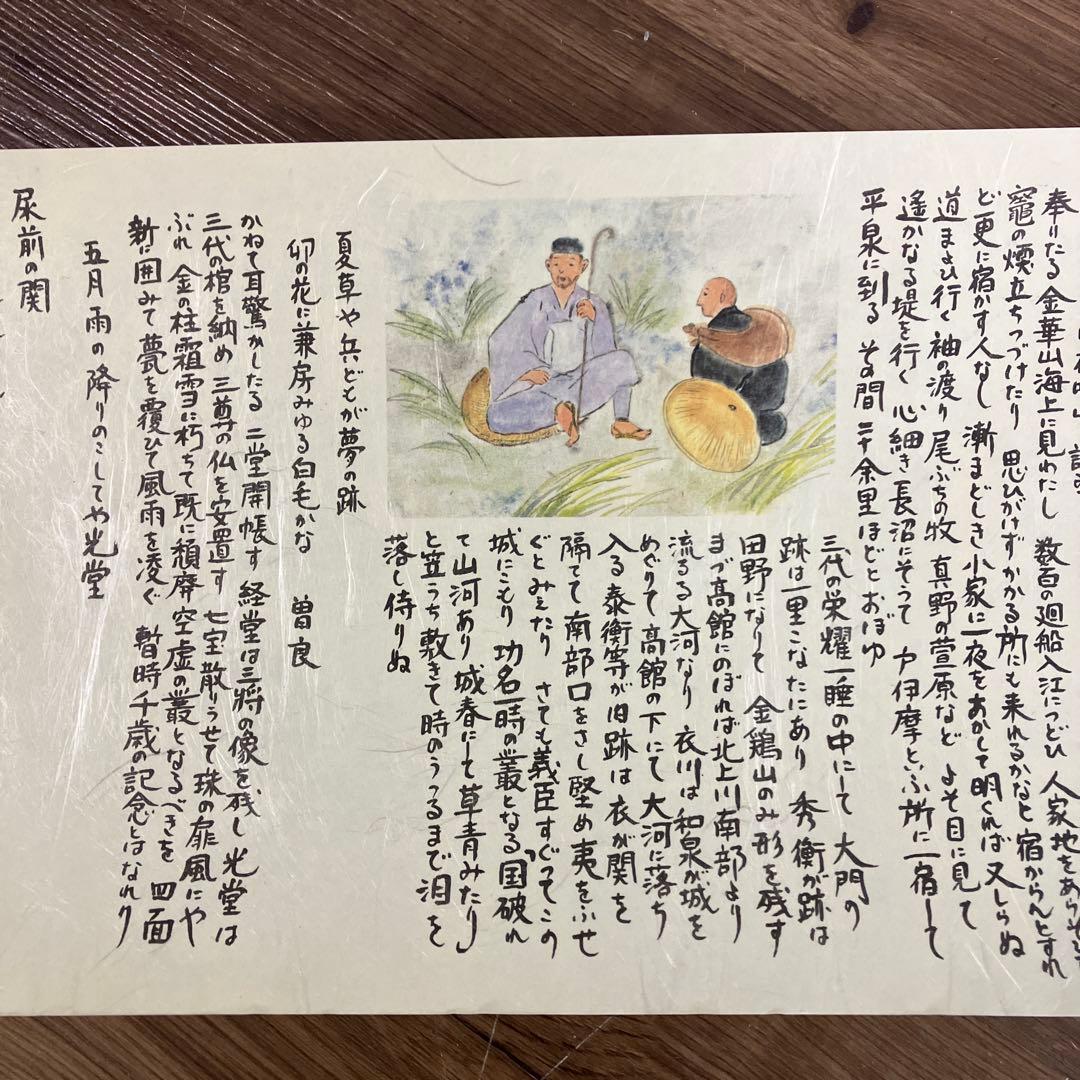 奉りたる金華山海上に見わたし 数百の廻船入江につどひ 人家地をあらそひ
竈の煙立ちつづけたり 思ひがけずかかる所にも来れるかなと 宿からんとすれ
ど更に宿かす人なし 漸まどしき小家に一夜をあかして明くれば又しらぬ
道まよひ行く 袖の渡り 尾ぶちの牧 真野の萱原など よそ目に見て
遙かなる堤を行く 心細き長沼にそうて 戸伊摩といふ所に一宿して
平泉に到る その間二十余里ほどとおぼゆ
三代の栄耀一睡の中にして 大門の
跡は一里こなたにあり 秀衡が跡は
田野になりて 金鶏山のみ形を残す
まづ高館にのぼれば北上川南部より
流るる大河なり 衣川は和泉が城を
めぐりて高館の下にて大河に落ち
入る 泰衡等が旧跡は衣が関を
隔てて南部口をさし堅め夷をふせ
ぐとみえたり さても義臣すぐってこの
城にこもり 功名一時の叢となる「国破れ
て山河あり 城春にして草青みたり」
と笠うち敷きて時のうつるまで泪を
落し侍りぬ
夏草や兵どもが夢の跡
卯の花に兼房みゆる白毛かな 曽良
かねて耳驚かしたる 二堂開帳す 経堂は三将の像を残し光堂は
三代の棺を納め 三尊の仏を安置す 七宝散りうせて珠の扉風にや
ぶれ 金の柱霜雪に朽ちて既に頽廃 空虚の叢となるべきを 四面
新に囲みて甍を覆ひて風雨を凌ぐ 暫時千歳の記念とはなれり
五月雨の降りのこしてや光堂
尿前の関